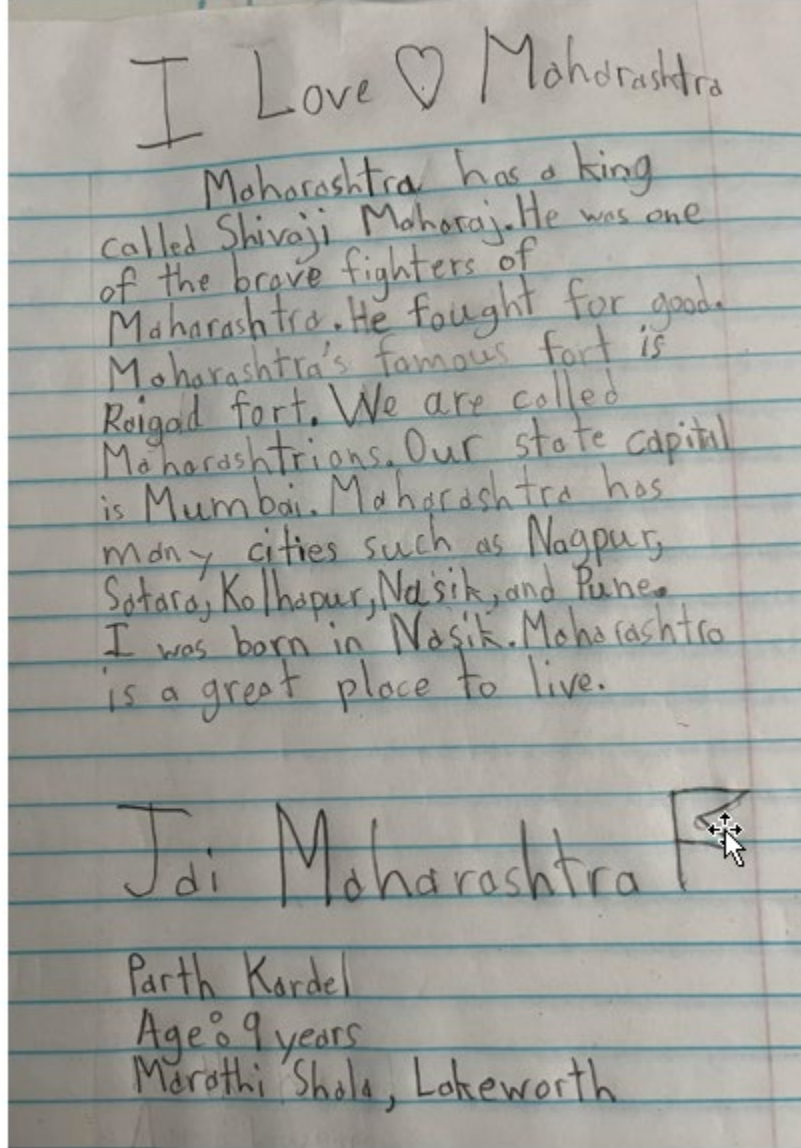 I Love ♡ Maharashtra
Maharashtra has a king
called Shivaji Maharaj. He was one
of the brave fighters of
Maharashtra. He fought for good.
Maharashtra's famous fort is
Raigad fort. We are called
Maharashtrians. Our state capital
is Mumbai. Maharashtra has
many cities such as Nagpur,
Satara, Kolhapur, Nasik, and Pune.
I was born in Nasik. Maharashtra
is a great place to live.
Jai Maharashtra
Parth Kardel
Age: 9 years
Marathi Shala, Lakeworth